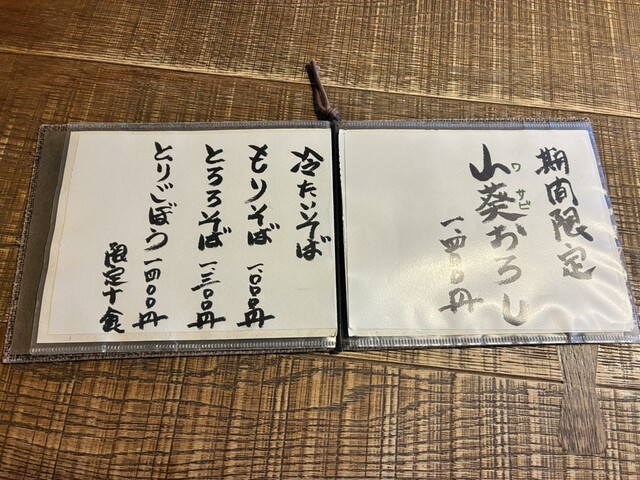 期間限定
山葵おろし
ワサビ
一、四〇〇円
冷たいそば
もりそば 一、〇〇〇円
とろろそば 一三〇〇円
とりごぼう 一四〇〇円
限定十食